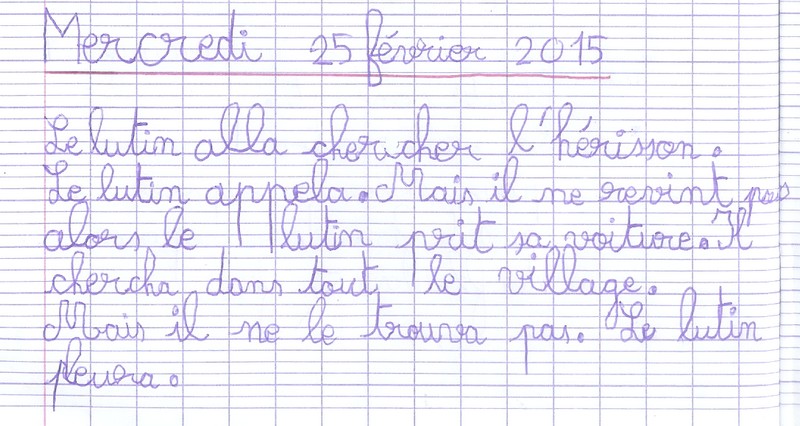 Mercredi 25 février 2015
Le lutin alla chercher l'hérisson.
Le lutin appela. Mais il ne revint pas
alors le lutin prit sa voiture. Il
chercha dans tout le village.
Mais il ne le trouva pas. Le lutin
pleura.